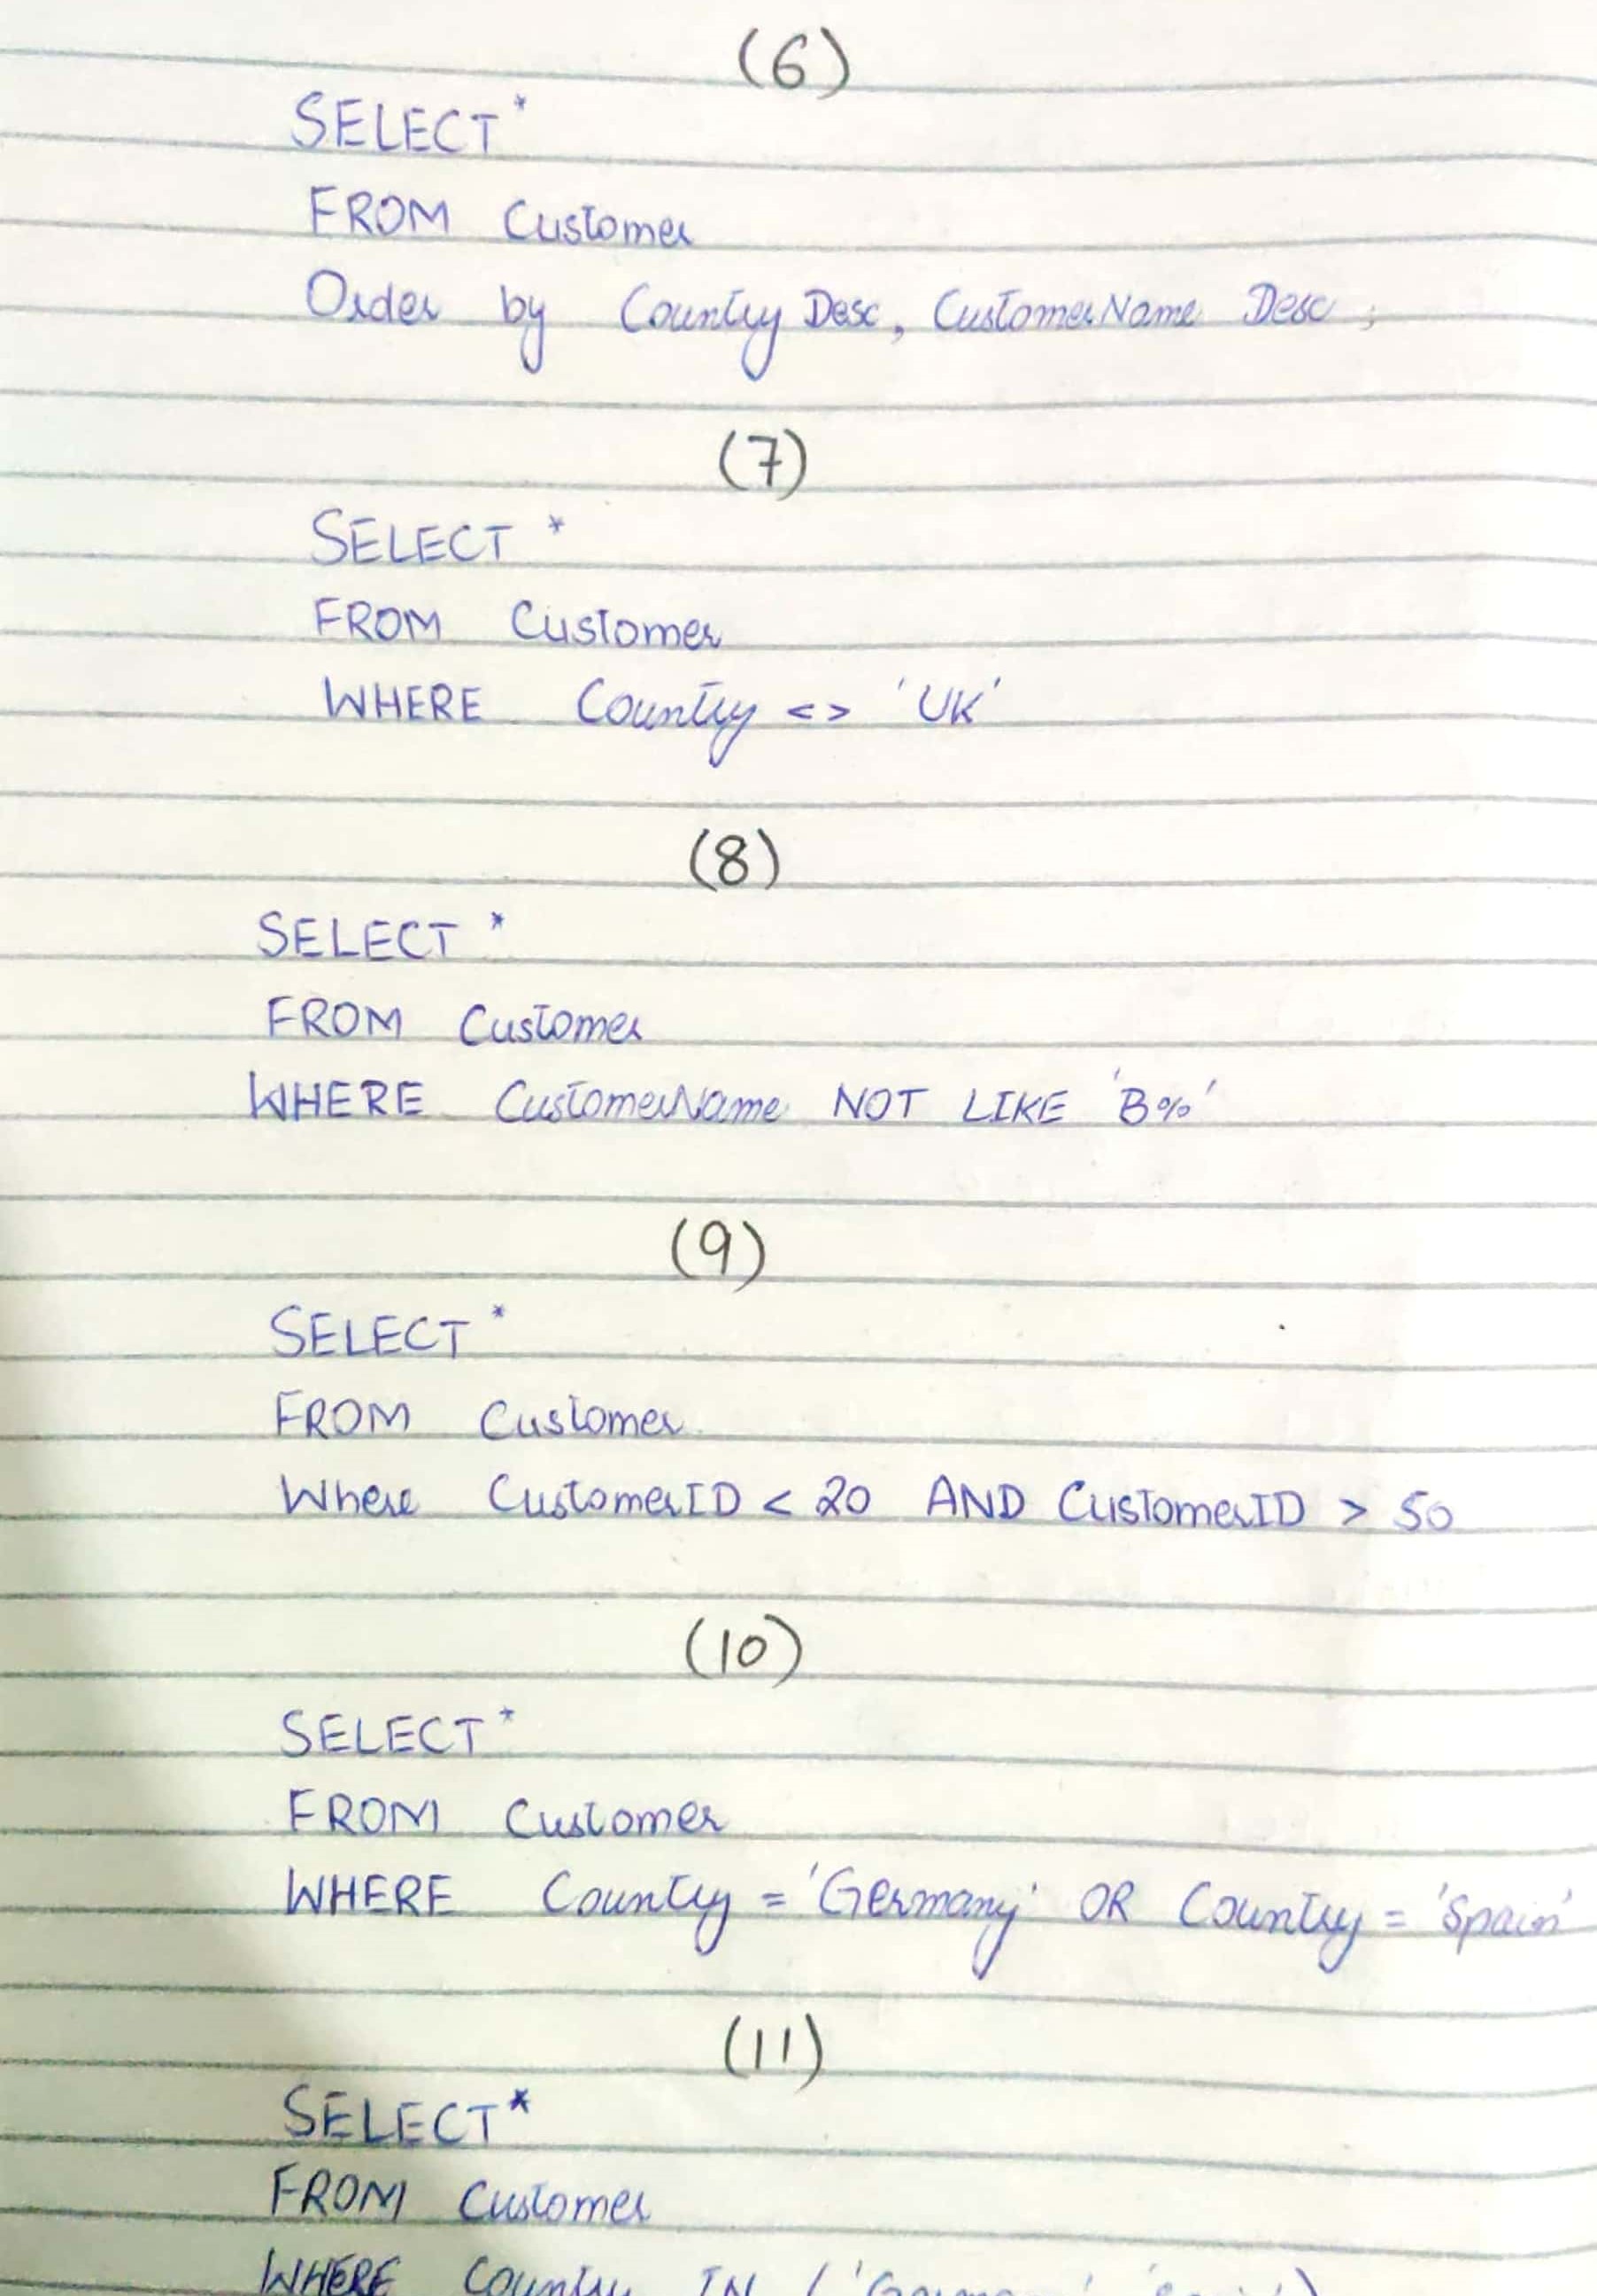 (6)
SELECT *
FROM Customer
Order by Country Desc, CustomerName Desc;
(7)
SELECT *
FROM Customer
WHERE Country <> 'UK'
(8)
SELECT *
FROM Customer
WHERE CustomerName NOT LIKE 'B%'
(9)
SELECT *
FROM Customer
Where CustomerID < 20 AND CustomerID > 50
(10)
SELECT *
FROM Customer
WHERE Country = 'Germany' OR Country = 'Spain'
(11)
SELECT *
FROM Customer
WHERE Country IN ('Germany'